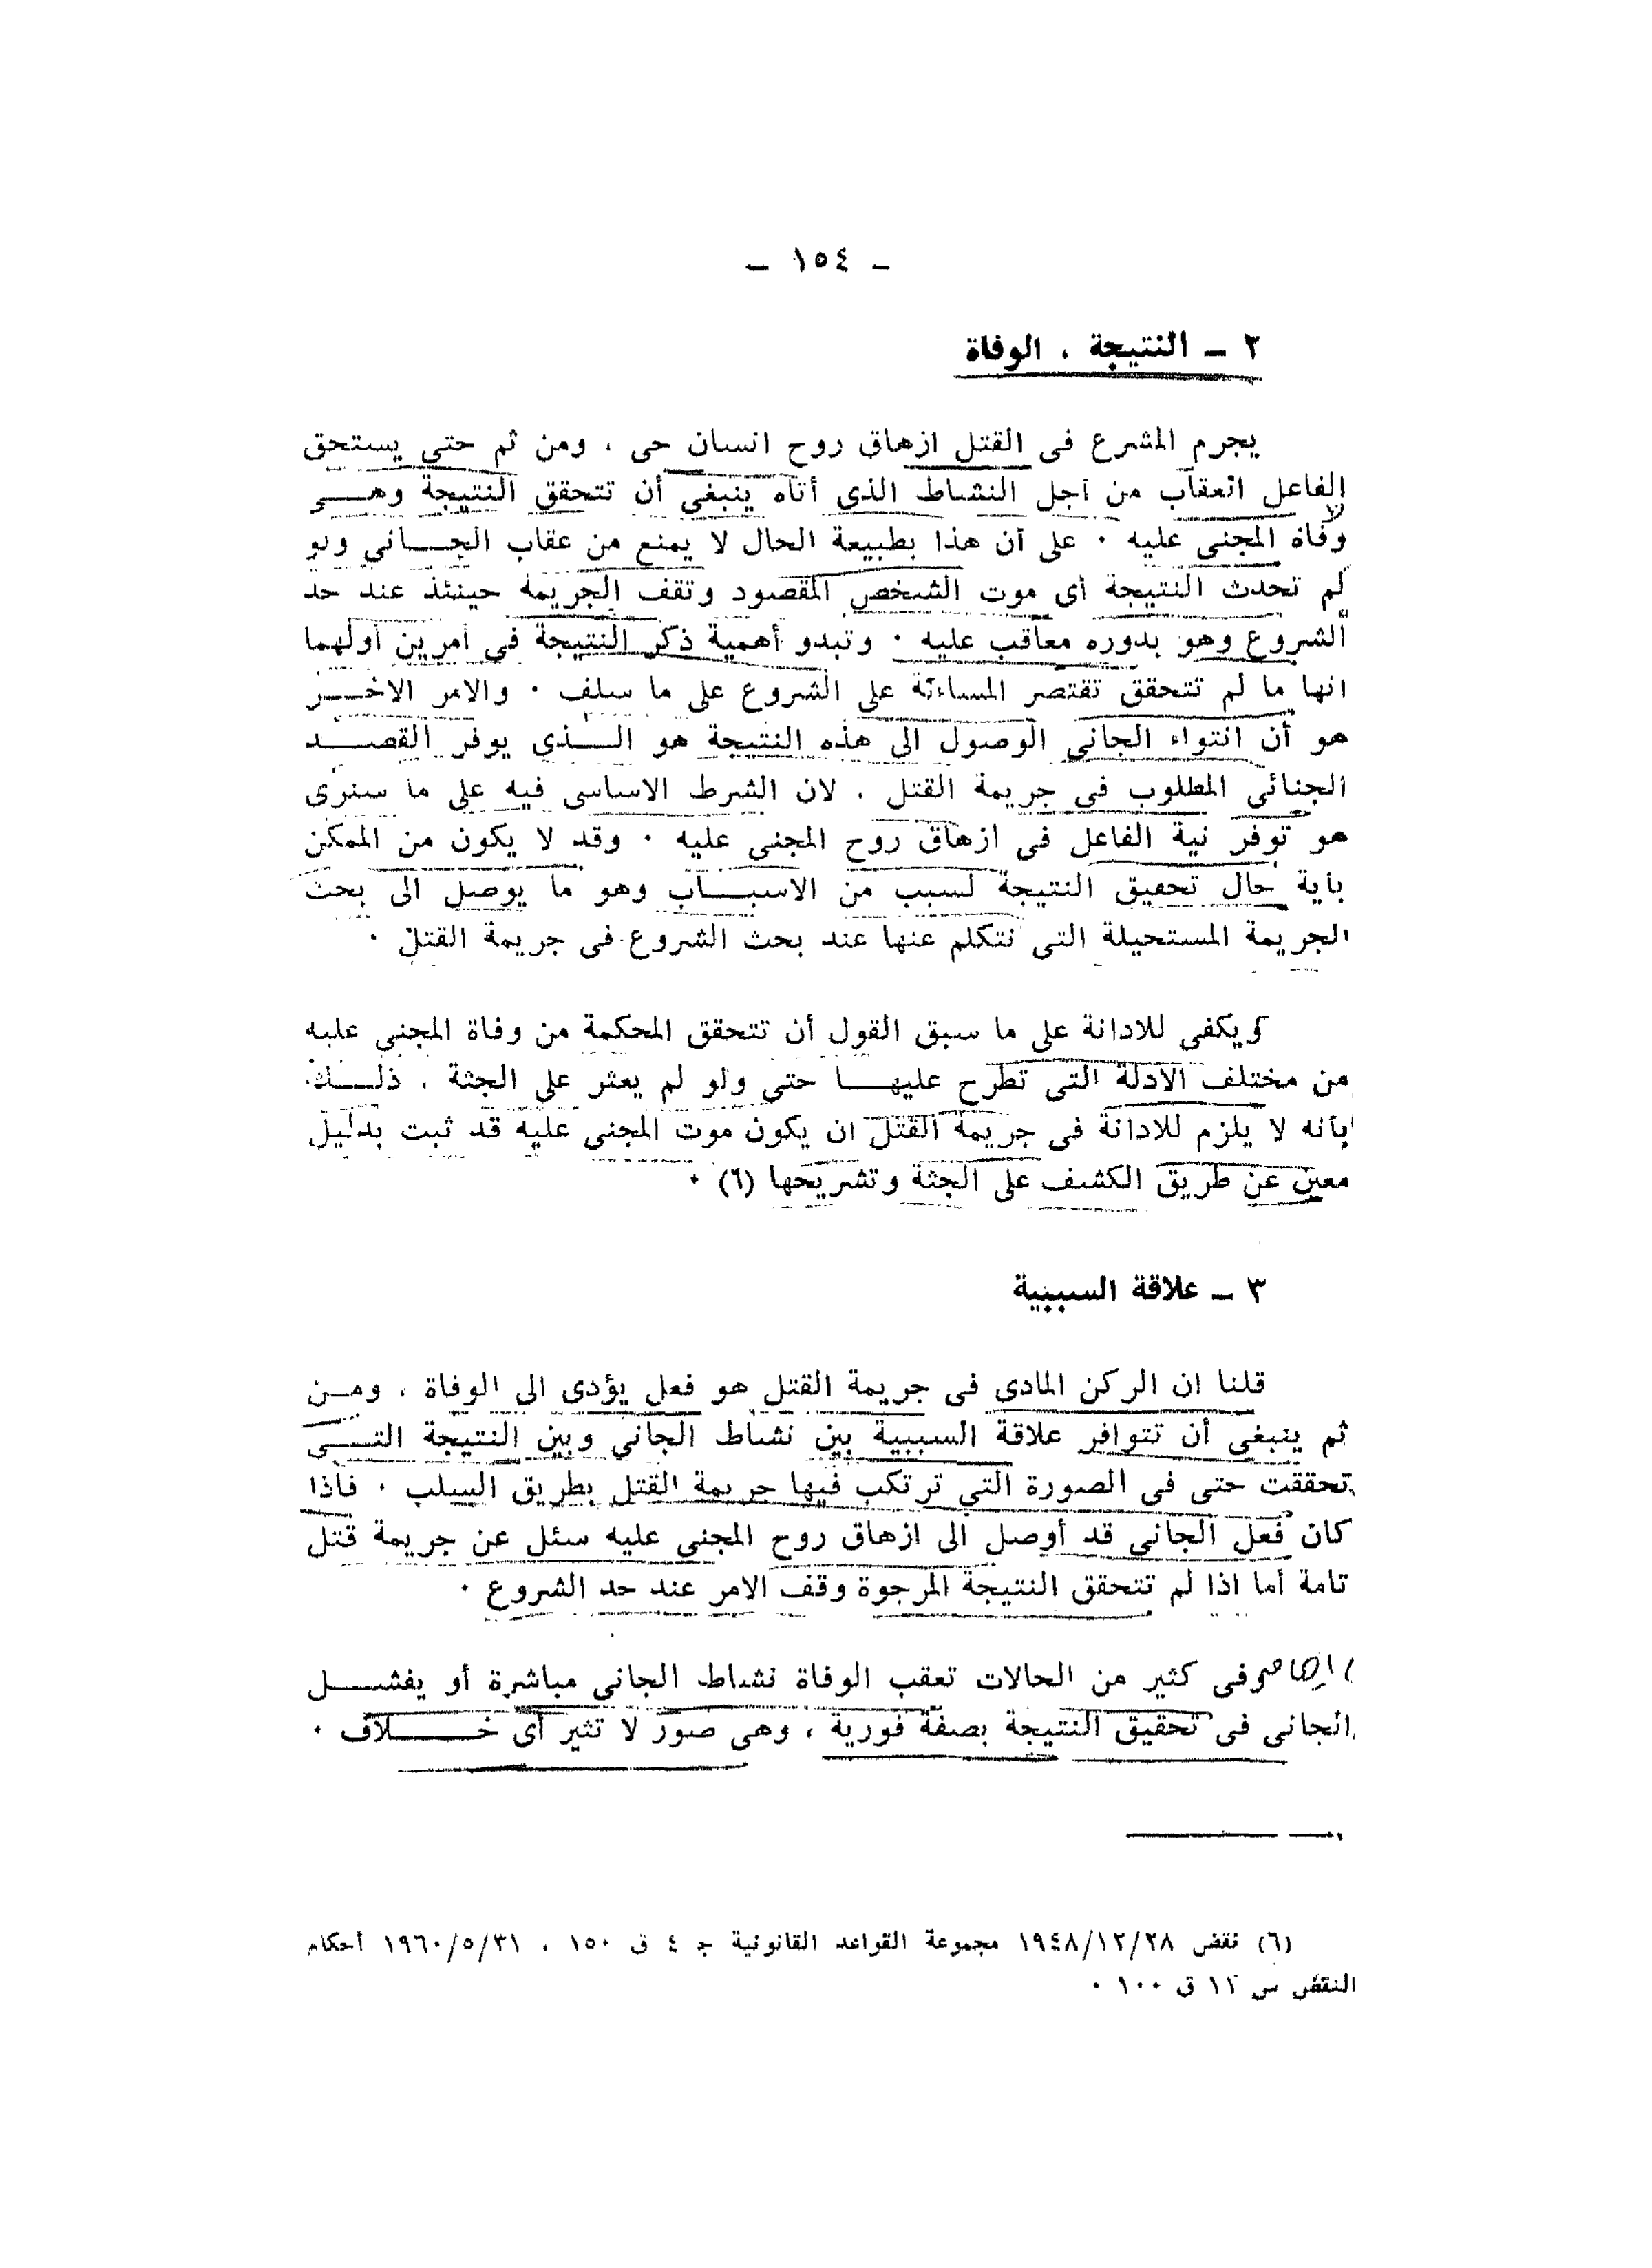 – ١٥٤ –
٢ – النتيجة ، الوفاة
يجرم المشرع فى القتل ازهاق روح انسان حى ، ومن ثم حتى يستحق
الفاعل العقاب من أجل النشاط الذى أتاه ينبغى أن تتحقق النتيجة وهــى
وفاة المجنى عليه ٠ على أن هذا بطبيعة الحال لا يمنع من عقاب الجــانى ولو
لم تحدث النتيجة أى موت الشخص المقصود وتقف الجريمة حينئذ عند حد
الشروع وهو بدوره معاقب عليه ٠ وتبدو أهمية ذكر النتيجة فى أمرين أولهما
انها ما لم تتحقق تقتصر المساءلة على الشروع على ما سلف ٠ والامر الاخــر
هو أن انتواء الجانى الوصول الى هذه النتيجة هو الــذى يوفر القصــد
الجنائى المطلوب فى جريمة القتل ، لان الشرط الاساسى فيه على ما سنرى
هو توفر نية الفاعل فى ازهاق روح المجنى عليه ٠ وقد لا يكون من الممكن
بأية حال تحقيق النتيجة لسبب من الاسبــاب وهو ما يوصل الى بحث
الجريمة المستحيلة التى نتكلم عنها عند بحث الشروع فى جريمة القتل ٠
ويكفى للادانة على ما سبق القول أن تتحقق المحكمة من وفاة المجنى عليه
من مختلف الادلة التى تطرح عليهــا حتى ولو لم يعثر على الجثة ، ذلــك
بأنه لا يلزم للادانة فى جريمة القتل ان يكون موت المجنى عليه قد ثبت بدليل
معين عن طريق الكشف على الجثة وتشريحها (٦) ٠
٣ – علاقة السببية
قلنا ان الركن المادى فى جريمة القتل هو فعل يؤدى الى الوفاة ، ومــن
ثم ينبغى أن تتوافر علاقة السببية بين نشاط الجانى وبين النتيجة التــى
تحققت حتى فى الصورة التى ترتكب فيها جريمة القتل بطريق السلب ٠ فاذا
كان فعل الجانى قد أوصل الى ازهاق روح المجنى عليه سئل عن جريمة قتل
تامة أما اذا لم تتحقق النتيجة المرجوة وقف الامر عند حد الشروع ٠
وفى كثير من الحالات تعقب الوفاة نشاط الجانى مباشرة أو يفشــل
الجانى فى تحقيق النتيجة بصفة فورية ، وهى صور لا تثير أى خــلاف ٠
(٦) نقض ١٩٤٨/١٢/٢٨ مجموعة القواعد القانونية جـ ٤ ق ١٥٠ ، ١٩٦٠/٥/٣١ أحكام
النقض س ١١ ق ١٠٠ ٠